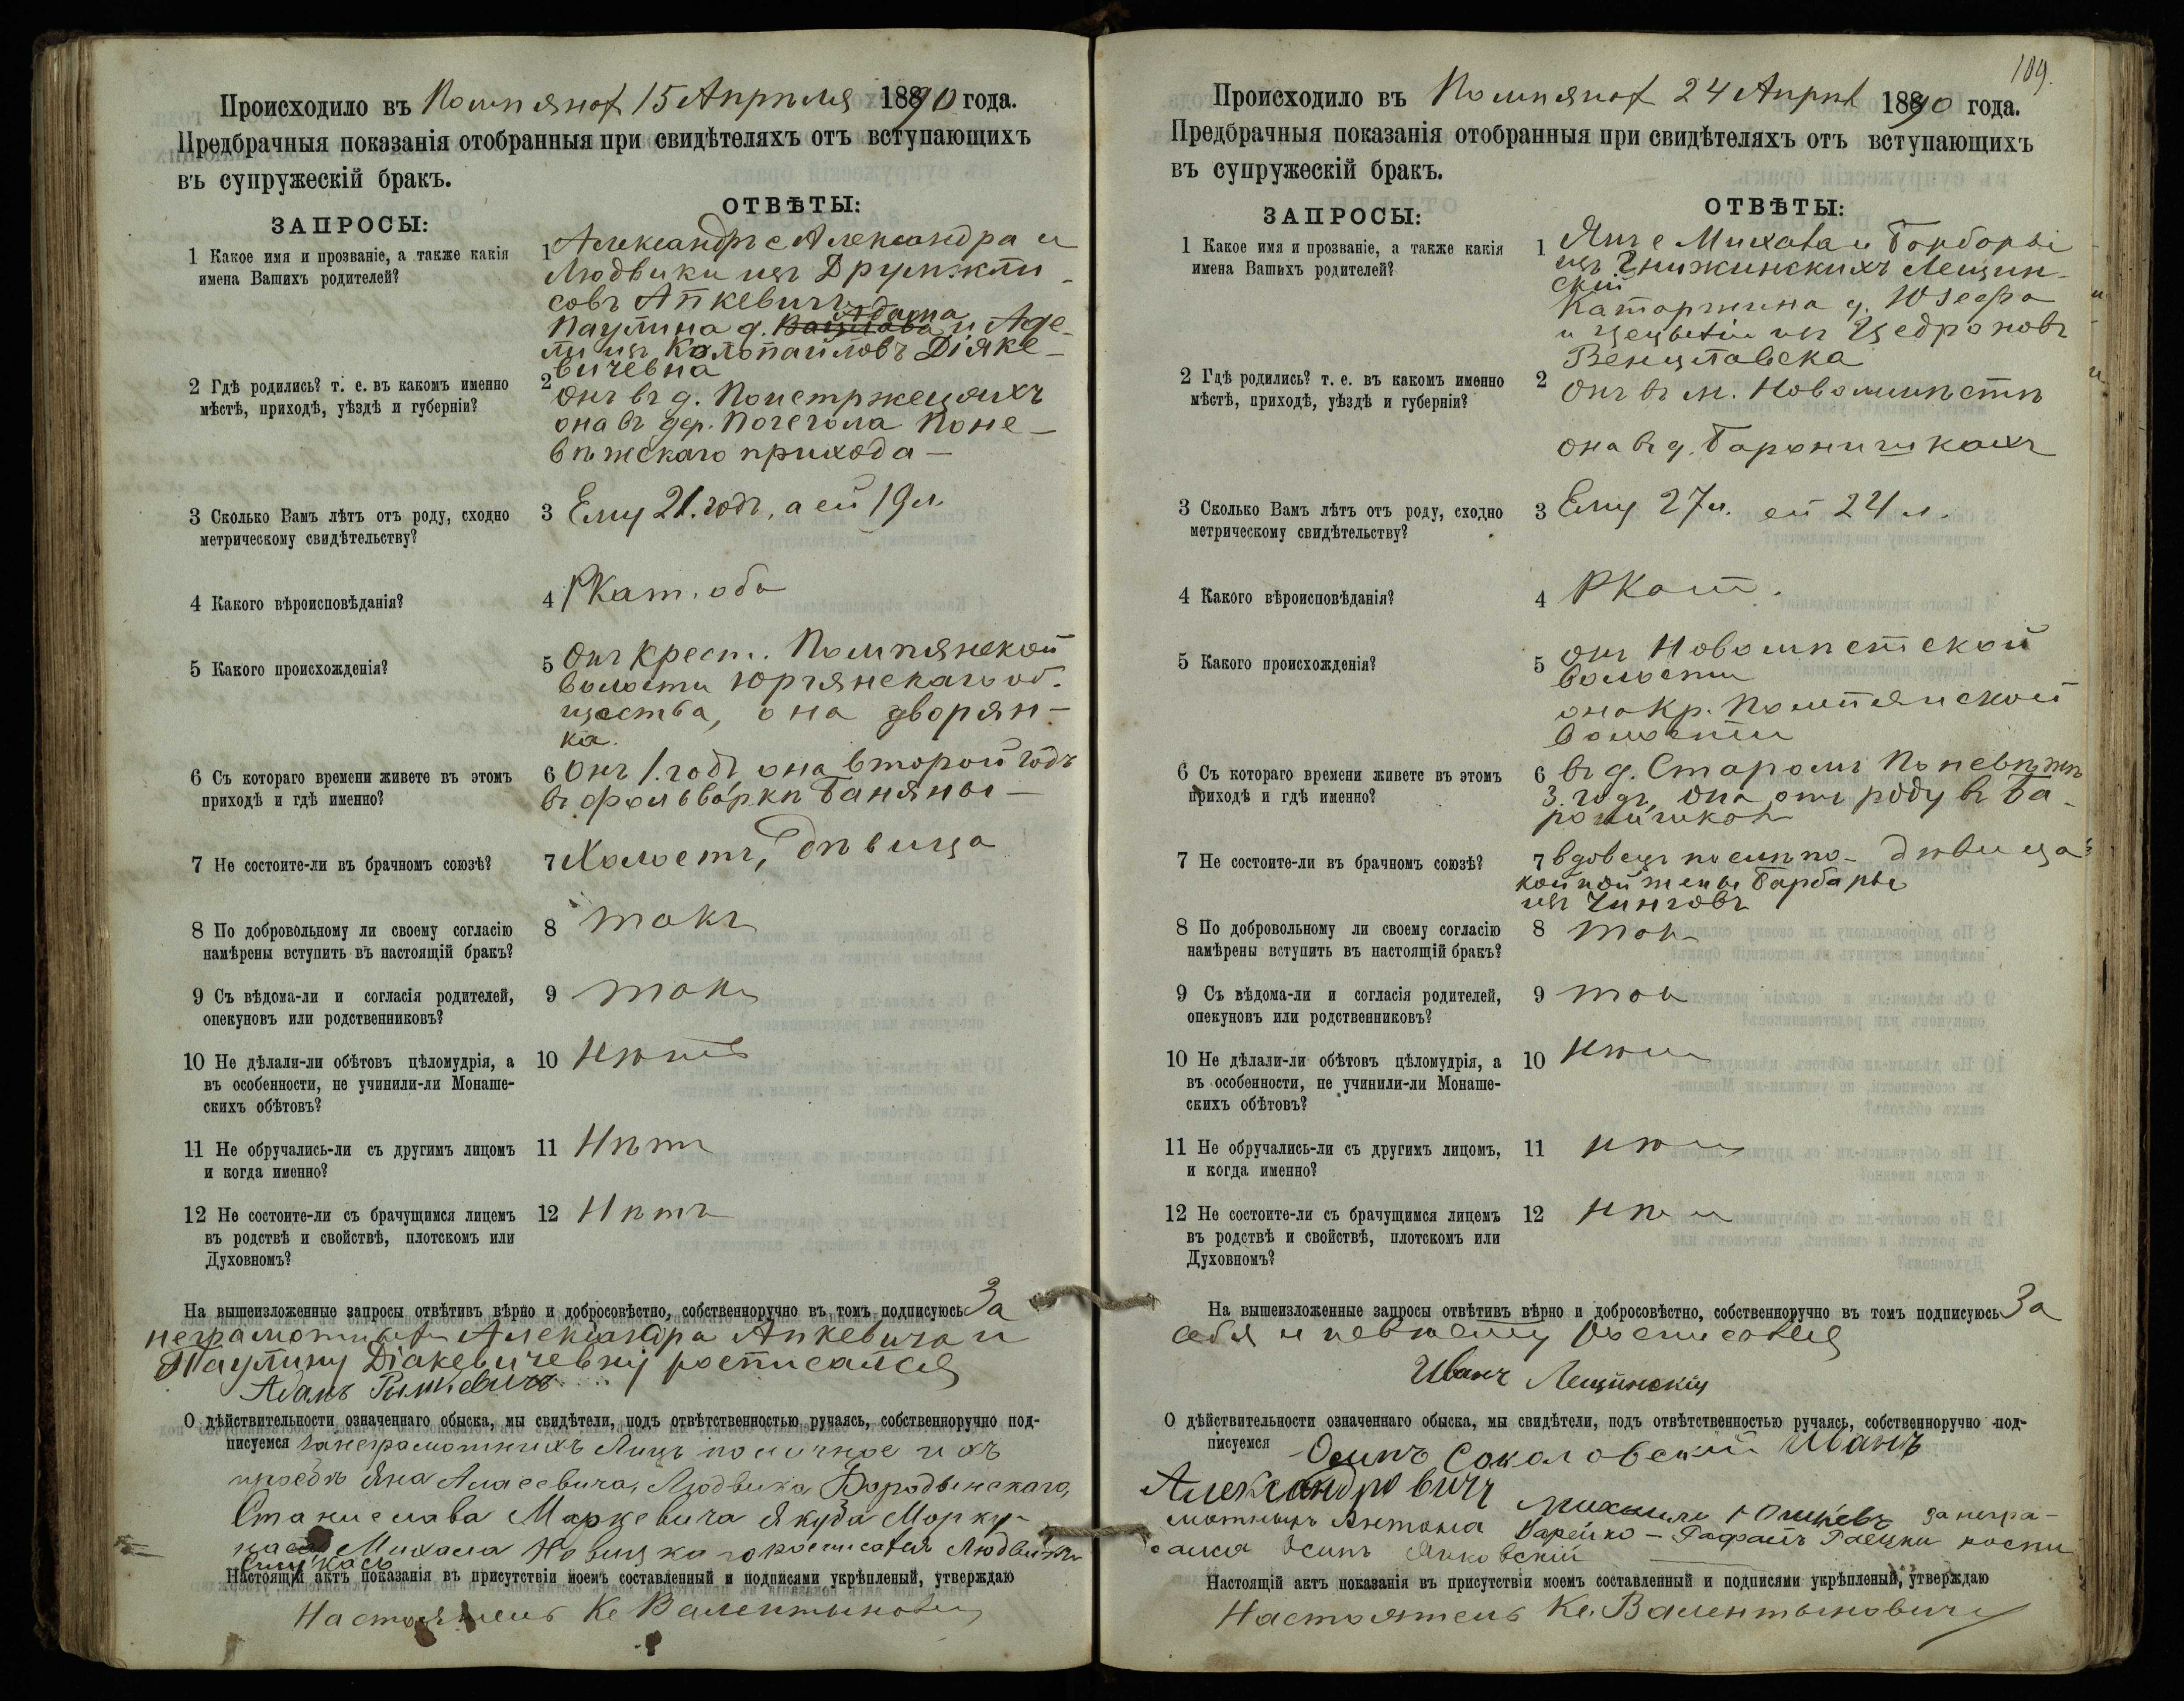 Происходило въ Помпянах 15 Апрѣля 1890 года.
Предбрачныя показанія отобранныя при свидѣтеляхъ отъ вступающихъ
въ супружескій бракъ.
ЗАПРОСЫ:
ОТВѢТЫ:
1 Какое имя и прозваніе, а также какія
имена Вашихъ родителей?
1 Александръ с Александра и
Людвики изъ
совъ Апкевичъ
Паулина д. Вацлава Адама и Аде-
ли изъ Колопайловъ Діяке-
вичевна
2 Гдѣ родились? т. е. въ какомъ именно
мѣстѣ, приходѣ, уѣздѣ и губерніи?
2 Онъ въ д.
она въ дер. Поне-
вѣжскаго прихода —
3 Сколько Вамъ лѣтъ отъ роду, сходно
метрическому свидѣтельству?
3 Ему 21. годъ, а ей 19 л.
4 Какого вѣроисповѣданія?
4 РКат. оба
5 Какого происхожденія?
5 Онъ крест. Помпянской
волости Юргянскаго об-
щества, она дворян-
ка.
6 Съ котораго времени живете въ этомъ
приходѣ и гдѣ именно?
6 Онъ 1. годъ она второй годъ
въ фольваркѣ Баняны —
7 Не состоите-ли въ брачномъ союзѣ?
7 Холостъ, Дѣвица
8 По добровольному ли своему согласію
намѣрены вступить въ настоящій бракъ?
8 такъ
9 Съ вѣдома-ли и согласія родителей,
опекуновъ или родственниковъ?
9 такъ
10 Не дѣлали-ли обѣтовъ цѣломудрія, а
въ особенности, не учинили-ли Монаше-
скихъ обѣтовъ?
10 нѣтъ
11 Не обручались-ли съ другимъ лицомъ
и когда именно?
11 Нѣтъ
12 Не состоите-ли съ брачущимся лицемъ
въ родствѣ и свойствѣ, плотскомъ или
Духовномъ?
12 Нѣтъ
На вышеизложенные запросы отвѣтивъ вѣрно и добросовѣстно, собственноручно въ томъ подписуюсь За
неграмотныхъ Александра Апкевича и
Паулину Діакевичевну росписался
Адамъ
О дѣйствительности означеннаго обыска, мы свидѣтели, подъ отвѣтственностью ручаясь, собственноручно под-
писуемся за неграмотныхъ Лицъ по личной ихъ
просьбѣ Яна Людвика
Станислава Маркевича Якуба Морку-
наса Михала Новицкаго росписался Людвикъ
Настоящій актъ показанія въ присутствіи моемъ составленный и подписями укрѣпленый, утверждаю
Настоятель Кс Валентыновичъ
109.
Происходило въ Помпянах 24 Апрѣл 1890 года.
Предбрачныя показанія отобранныя при свидѣтеляхъ отъ вступающихъ
въ супружескій бракъ.
ЗАПРОСЫ:
ОТВѢТЫ:
1 Какое имя и прозваніе, а также какія
имена Вашихъ родителей?
1 Янъ с Михала и Барбары
изъ Лещин-
скій
Катаржина д. Юзефа
и Цецыліи изъ Цедроновъ
Венцлавска
2 Гдѣ родились? т. е. въ какомъ именно
мѣстѣ, приходѣ, уѣздѣ и губерніи?
2 Онъ въ м. Новомѣстѣ
она въ д. Баронишкахъ
3 Сколько Вамъ лѣтъ отъ роду, сходно
метрическому свидѣтельству?
3 Ему 27 л. ей 24 л.
4 Какого вѣроисповѣданія?
4 РКат.
5 Какого происхожденія?
5 Онъ Новомѣстской
волости
она кр. Помпянской
волости
6 Съ котораго времени живете въ этомъ
приходѣ и гдѣ именно?
6 въ д. Старомъ Поневѣжѣ
3. годъ, Она отъ роду въ Ба-
ронишках
7 Не состоите-ли въ брачномъ союзѣ?
7 вдовецъ послѣ по- дѣвица
койной жены Барбары
изъ Чинговъ
8 По добровольному ли своему согласію
намѣрены вступить въ настоящій бракъ?
8 так
9 Съ вѣдома-ли и согласія родителей,
опекуновъ или родственниковъ?
9 так
10 Не дѣлали-ли обѣтовъ цѣломудрія, а
въ особенности, не учинили-ли Монаше-
скихъ обѣтовъ?
10 нѣт
11 Не обручались-ли съ другимъ лицомъ,
и когда именно?
11 нѣт
12 Не состоите-ли съ брачущимся лицемъ
въ родствѣ и свойствѣ, плотскомъ или
Духовномъ?
12 нѣт
На вышеизложенные запросы отвѣтивъ вѣрно и добросовѣстно, собственноручно въ томъ подписуюсь За
себя и невѣсту росписался
Иванъ Лещинскій
О дѣйствительности означеннаго обыска, мы свидѣтели, подъ отвѣтственностью ручаясь, собственноручно под-
писуемся Осипъ Соколовскій Иванъ
Александровичъ
за негра-
мотныхъ Антона роспи
сался Осипъ Янковскій
Настоящій актъ показанія въ присутствіи моемъ составленный и подписями укрѣпленый, утверждаю
Настоятель Кс. Валентыновичъ